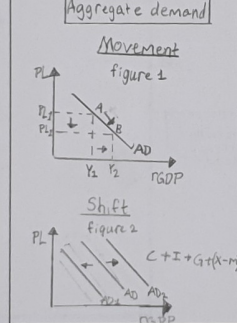 Aggregate demand
Movement
figure 1
PL
PL1
A
PL2
B
AD
Y1 Y2
rGDP
Shift
figure 2
PL
C + I + G + (X-m
AD1 AD AD2
rGDP